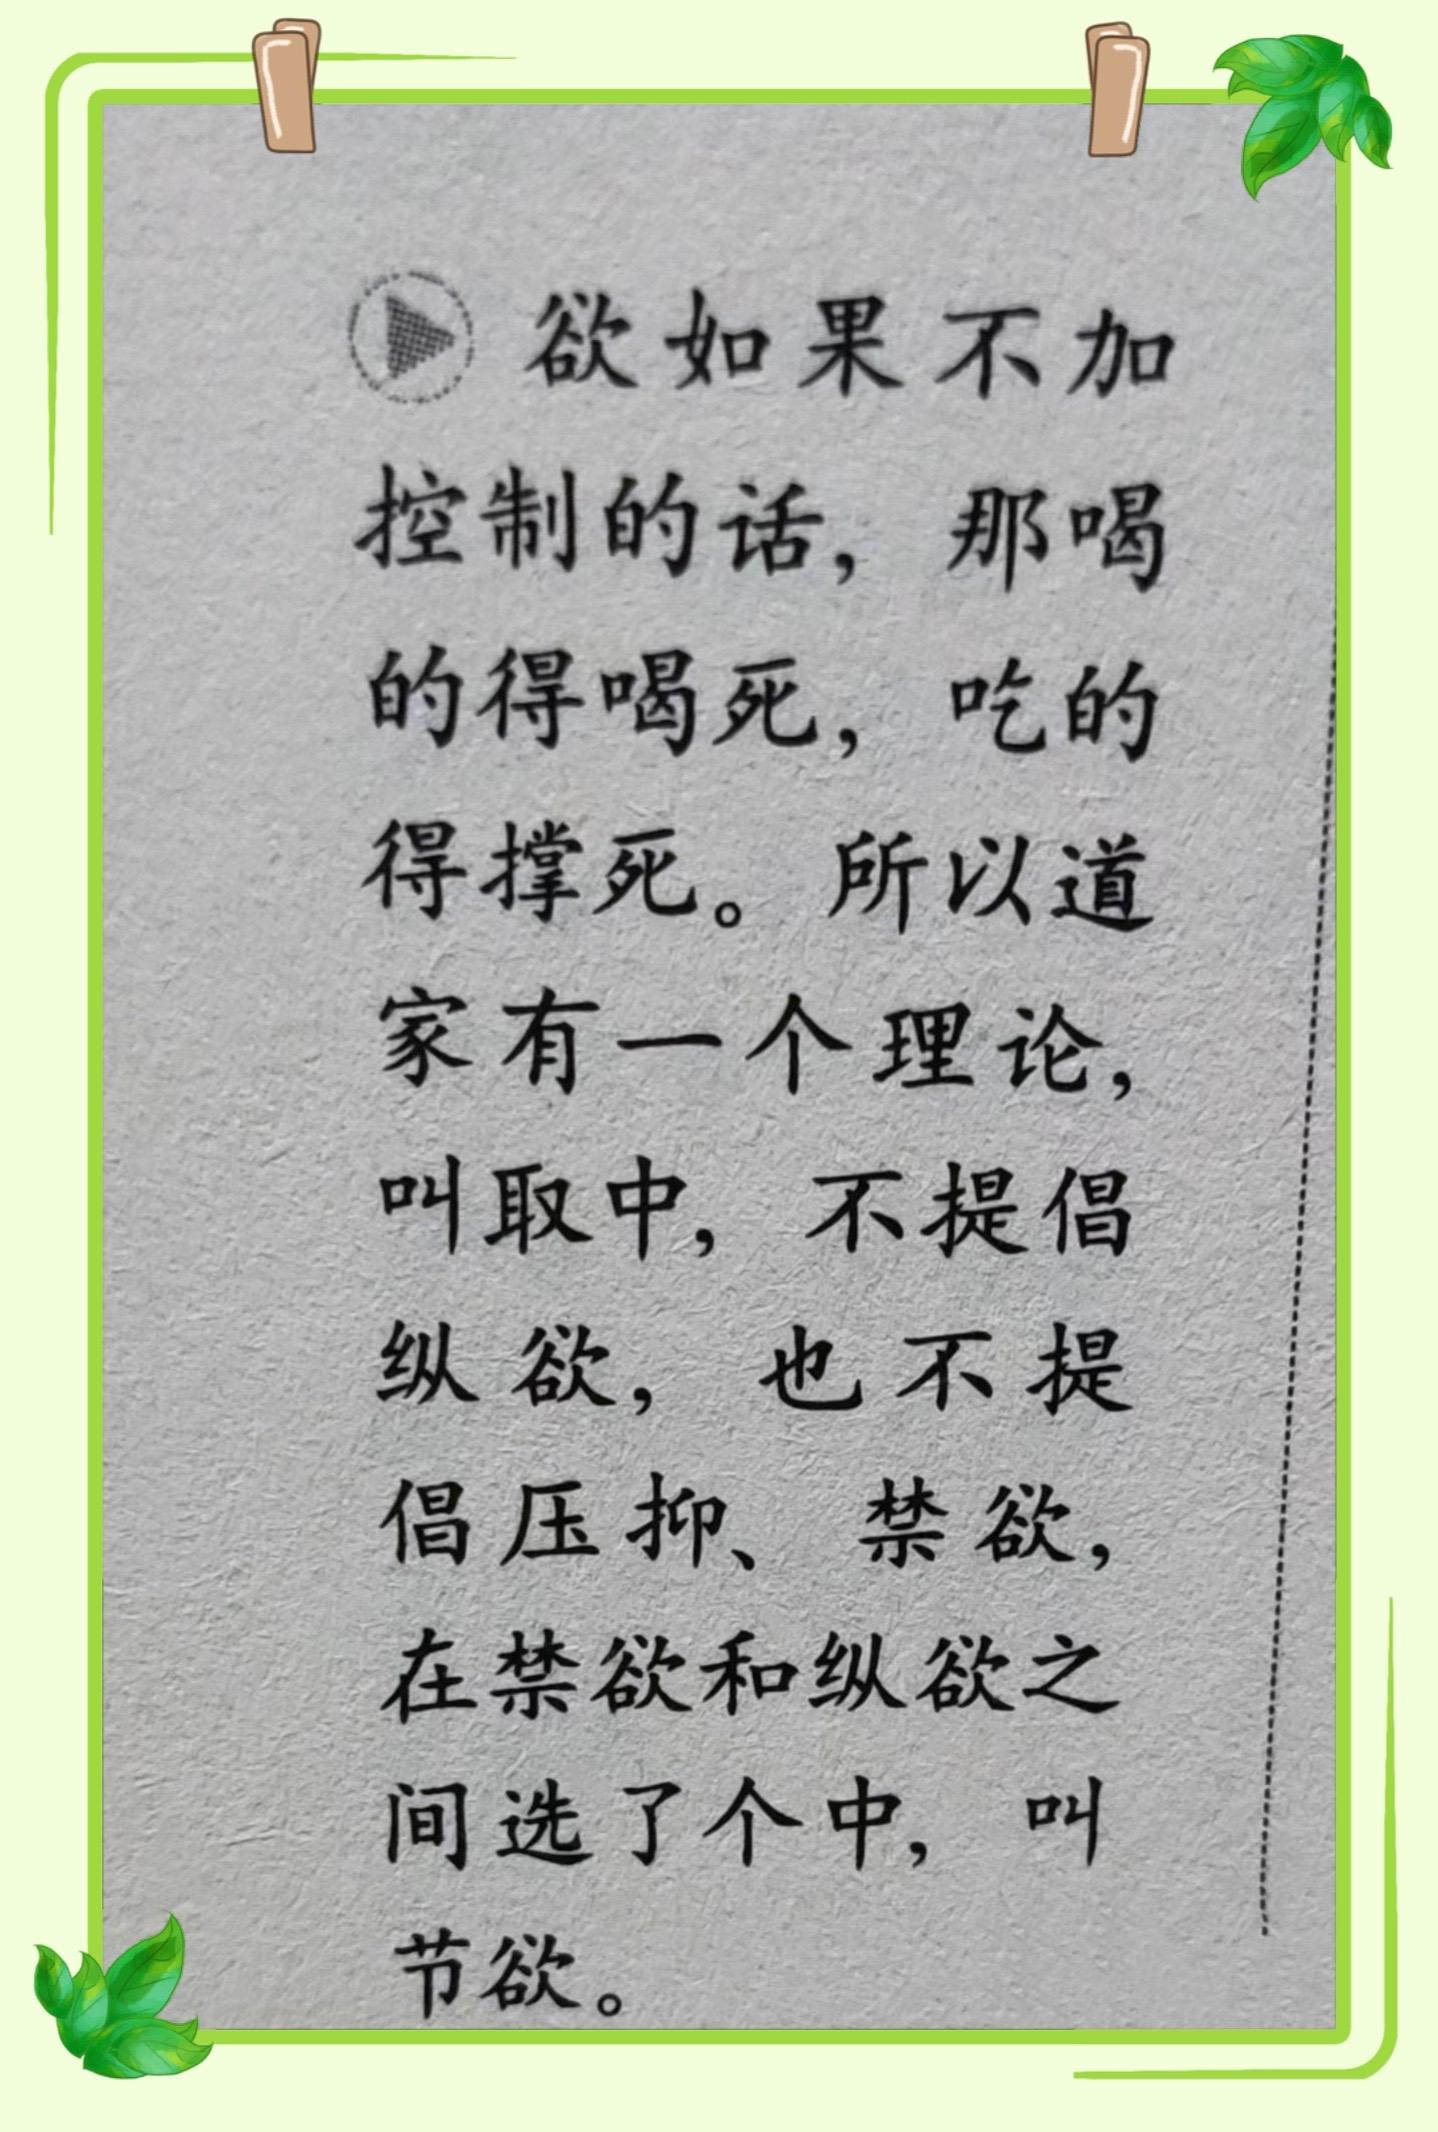 欲如果不加
控制的话，那喝
的得喝死，吃的
得撑死。所以道
家有一个理论，
叫取中，不提倡
纵欲，也不提
倡压抑、禁欲，
在禁欲和纵欲之
间选了个中，叫
节欲。